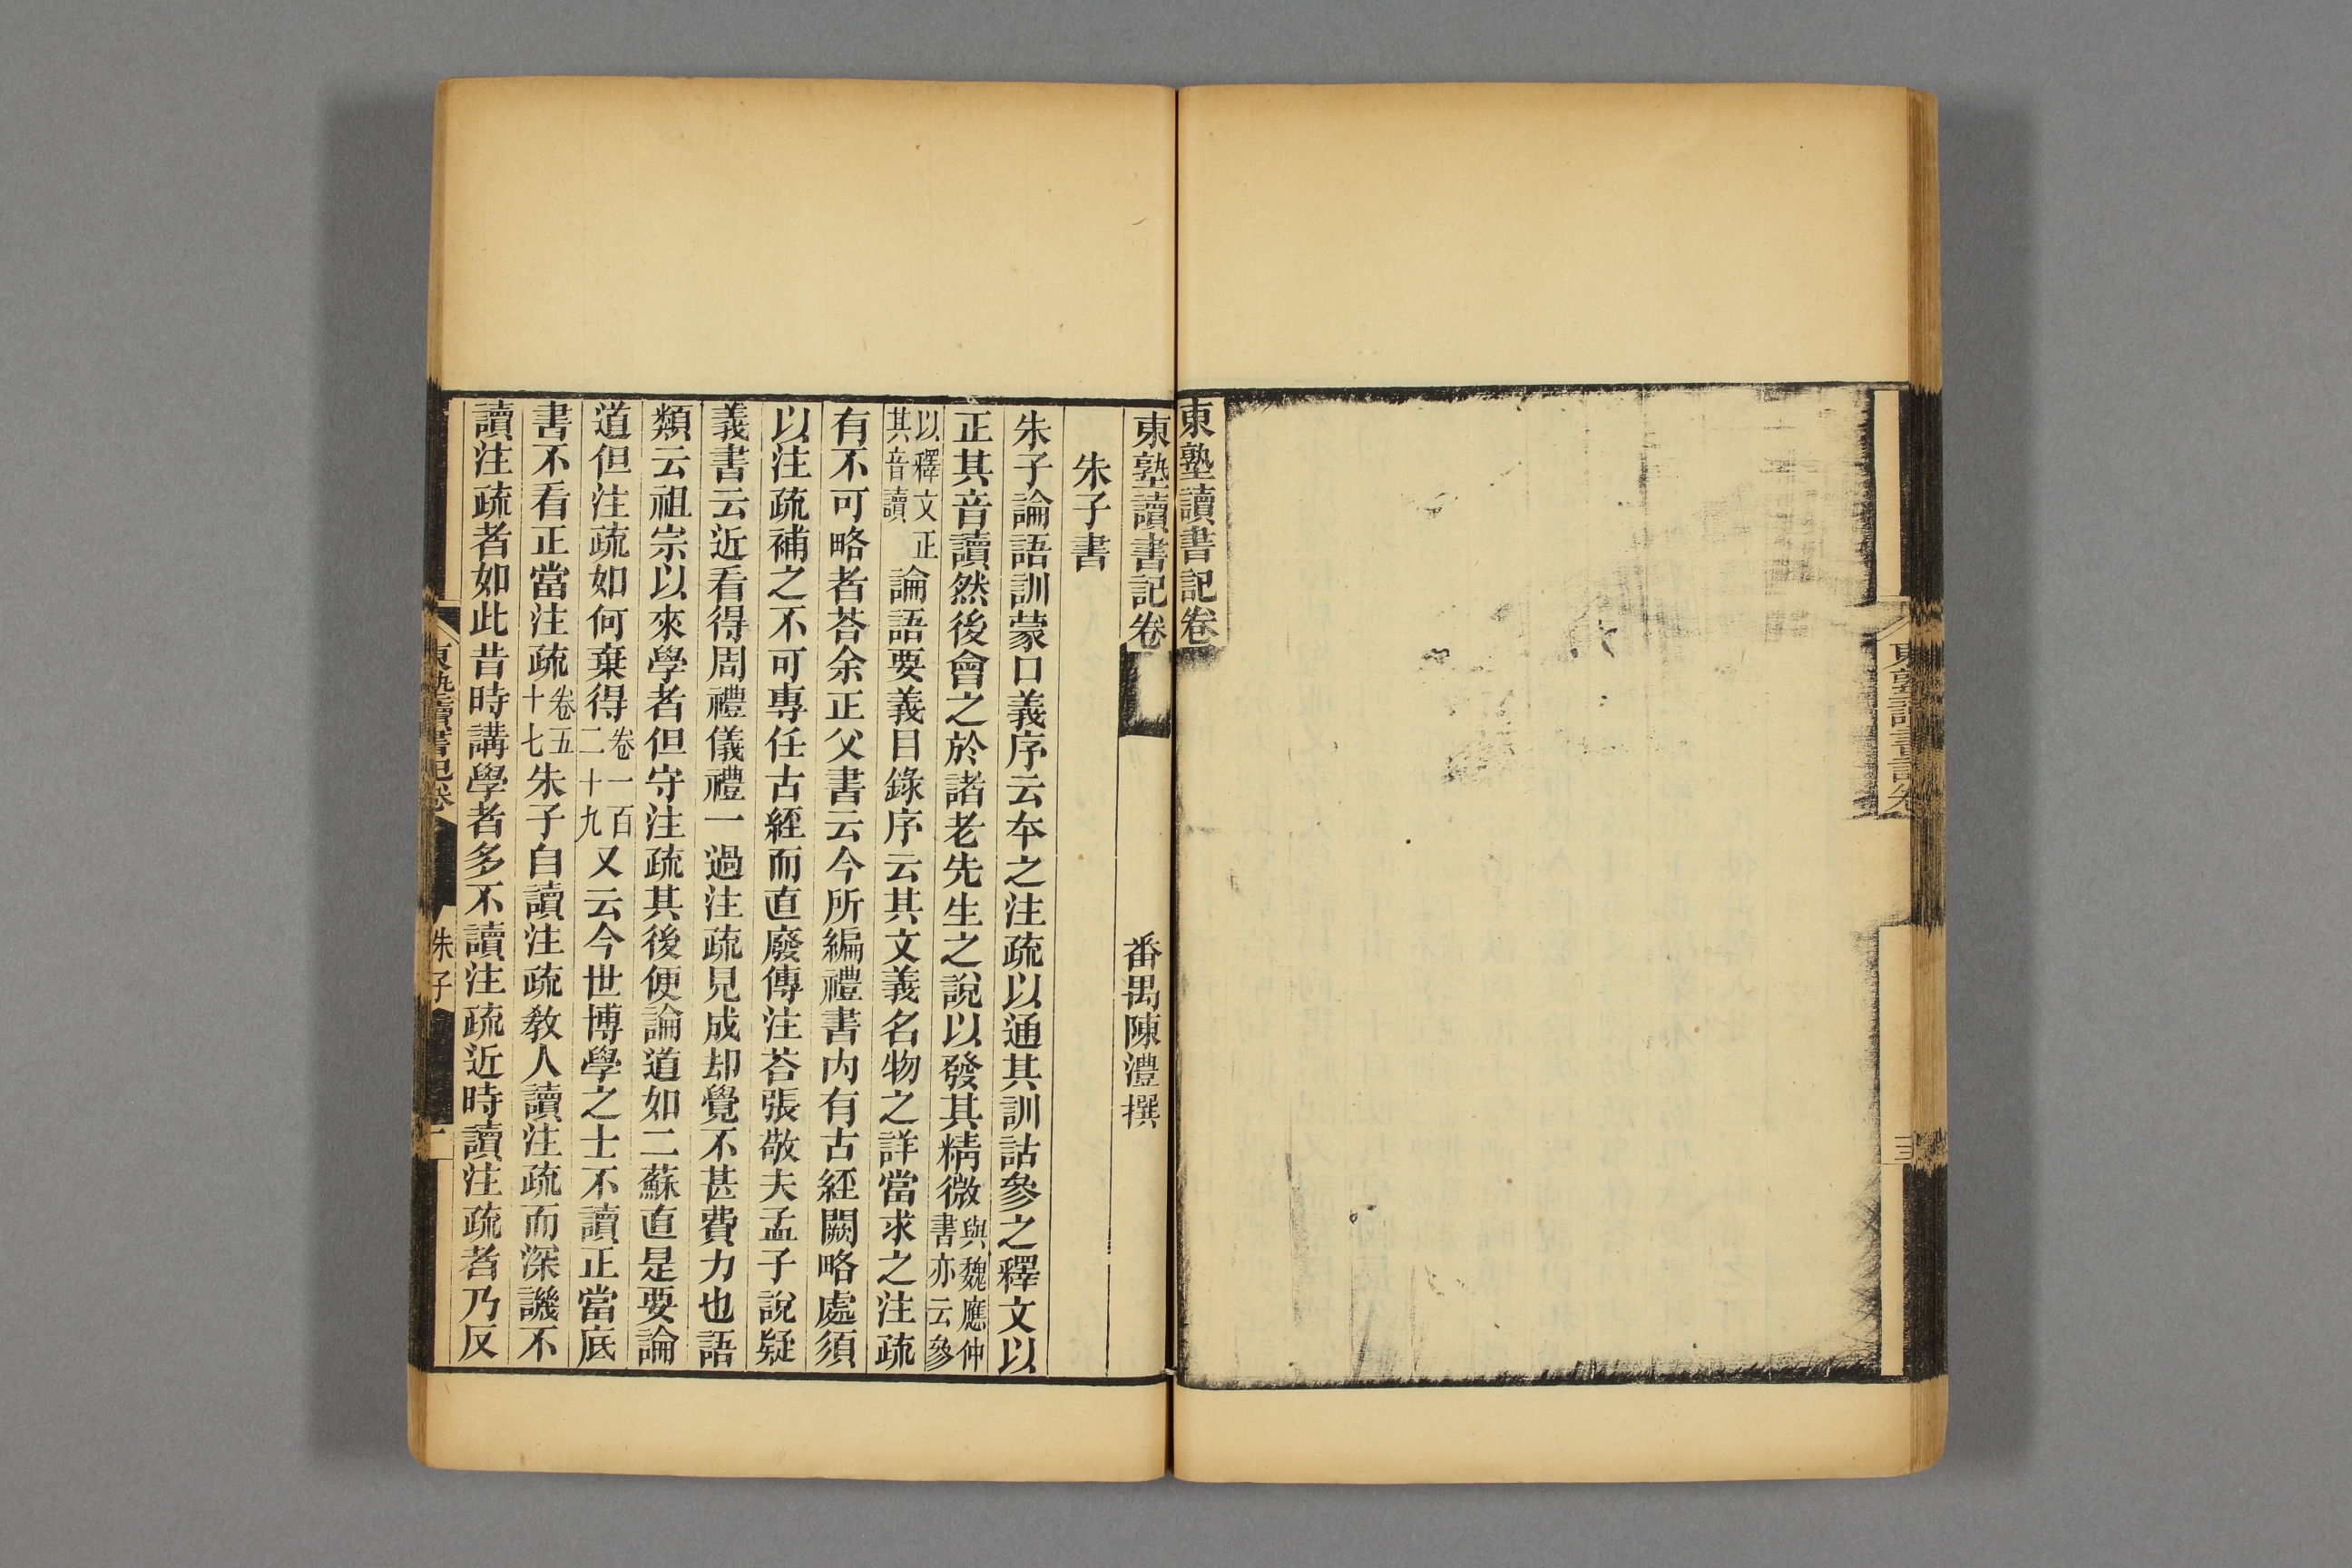 東塾讀書記卷
東塾讀書記卷
東塾讀書記卷 番禺陳澧撰
朱子書
朱子論語訓蒙口義序云夲之注疏以通其訓詁參之釋文以
正其音讀然後會之於諸老先生之說以發其精微與魏應仲書亦云參
以釋文正其音讀論語要義目錄序云其文義名物之詳當求之注疏
有不可略者荅余正父書云今所編禮書内有古經闕略處須
以注疏補之不可專任古經而直廢傳注荅張敬夫孟子說疑
義書云近看得周禮儀禮一過注疏見成却覺不甚費力也語
類云祖宗以來學者但守注疏其後便論道如二蘇直是要論
道但注疏如何棄得卷一百二十九又云今世博學之士不讀正當底
書不看正當注疏卷五十七朱子自讀注疏敎人讀注疏而深譏不
讀注疏者如此昔時講學者多不讀注疏近時讀注疏者乃反
東塾讀書記卷 朱子